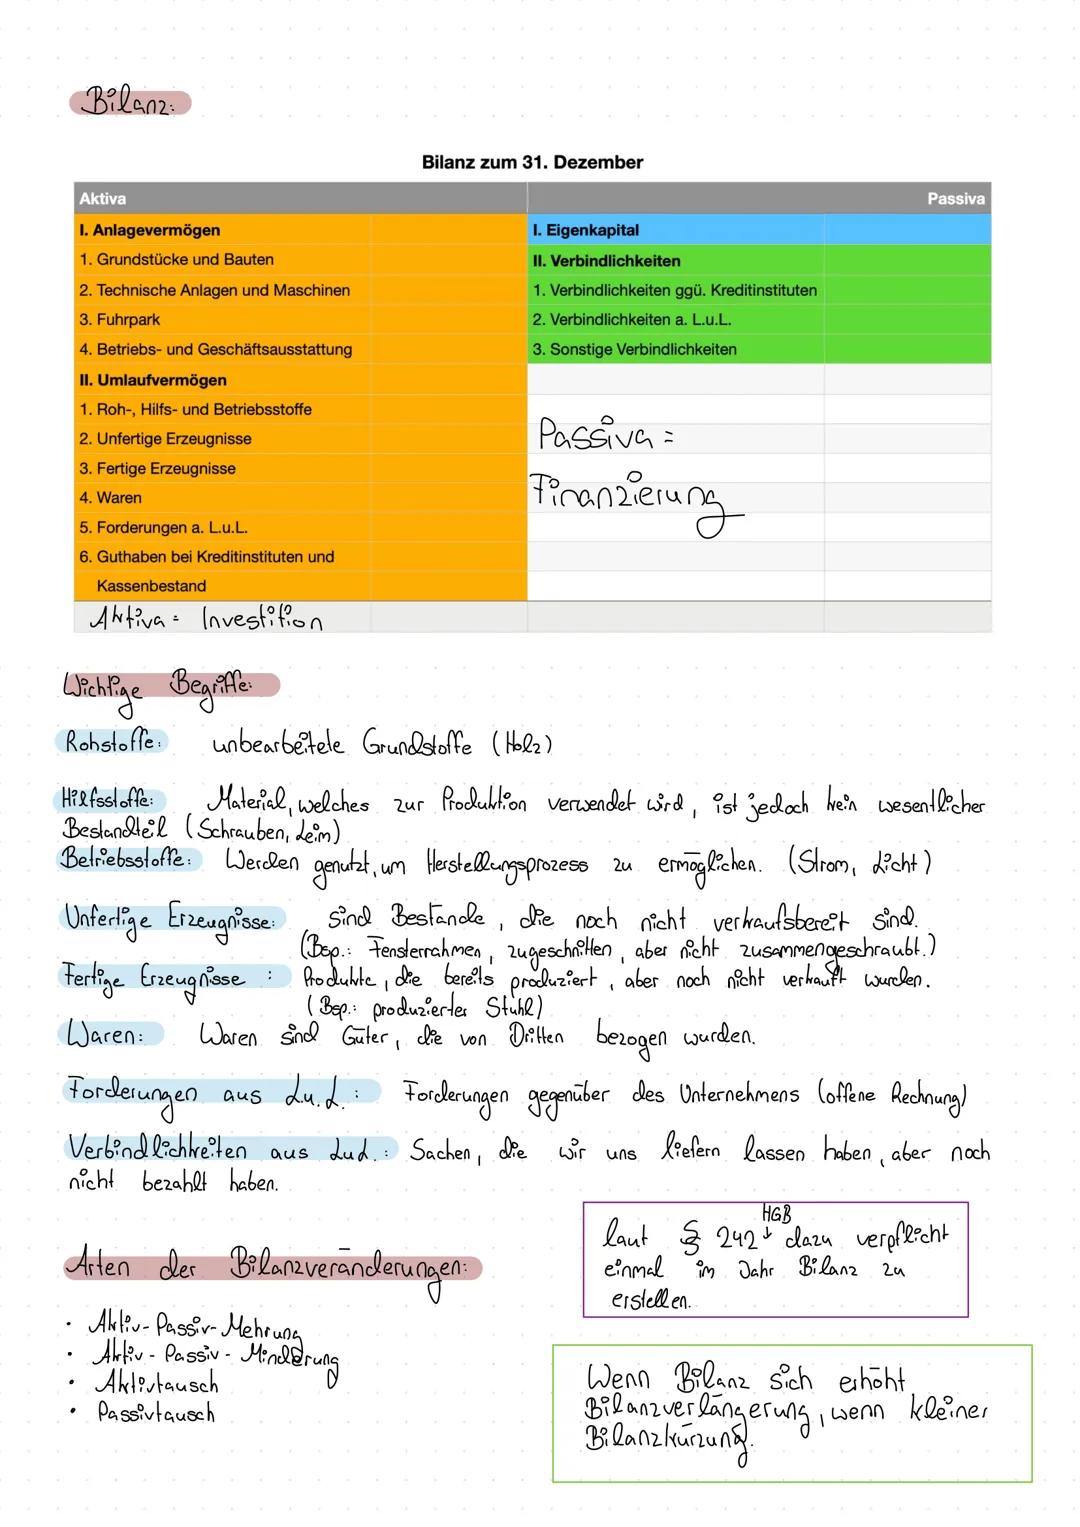 Bilanz:
Bilanz zum 31. Dezember
Aktiva
Passiva
I. Anlagevermögen
1. Grundstücke und Bauten
2. Technische Anlagen und Maschinen
3. Fuhrpark
4. Betriebs- und Geschäftsausstattung
II. Umlaufvermögen
1. Roh-, Hilfs- und Betriebsstoffe
2. Unfertige Erzeugnisse
3. Fertige Erzeugnisse
4. Waren
5. Forderungen a. L.u.L.
6. Guthaben bei Kreditinstituten und
Kassenbestand
Aktiva = Investition
I. Eigenkapital
II. Verbindlichkeiten
1. Verbindlichkeiten ggü. Kreditinstituten
2. Verbindlichkeiten a. L.u.L.
3. Sonstige Verbindlichkeiten
Passiva =
Finanzierung
Wichtige Begriffe:
Rohstoffe: unbearbeitete Grundstoffe (Holz)
Hilfsstoffe: Material, welches zur Produktion verwendet wird, ist jedoch kein wesentlicher
Bestandteil (Schrauben, Leim)
Betriebsstoffe: Werden genutzt, um Herstellungsprozess zu ermöglichen. (Strom, Licht)
Unfertige Erzeugnisse: sind Bestände, die noch nicht verkaufsbereit sind.
(Bsp.: Fensterrahmen, zugeschnitten, aber nicht zusammengeschraubt.)
Fertige Erzeugnisse : Produkte, die bereits produziert, aber noch nicht verkauft wurden.
(Bsp.: produzierter Stuhl)
Waren: Waren sind Güter, die von Dritten bezogen wurden.
Forderungen aus L.u.L.: Forderungen gegenüber des Unternehmens (offene Rechnung)
Verbindlichkeiten aus LuL.: Sachen, die wir uns liefern lassen haben, aber noch
nicht bezahlt haben.
HGB
laut § 242 ↓ dazu verpflicht
einmal im Jahr Bilanz zu
erstellen.
Arten der Bilanzveränderungen:
• Aktiv-Passiv-Mehrung
• Aktiv-Passiv-Minderung
• Aktivtausch
• Passivtausch
Wenn Bilanz sich erhöht
Bilanzverlängerung, wenn kleiner
Bilanzkürzung.